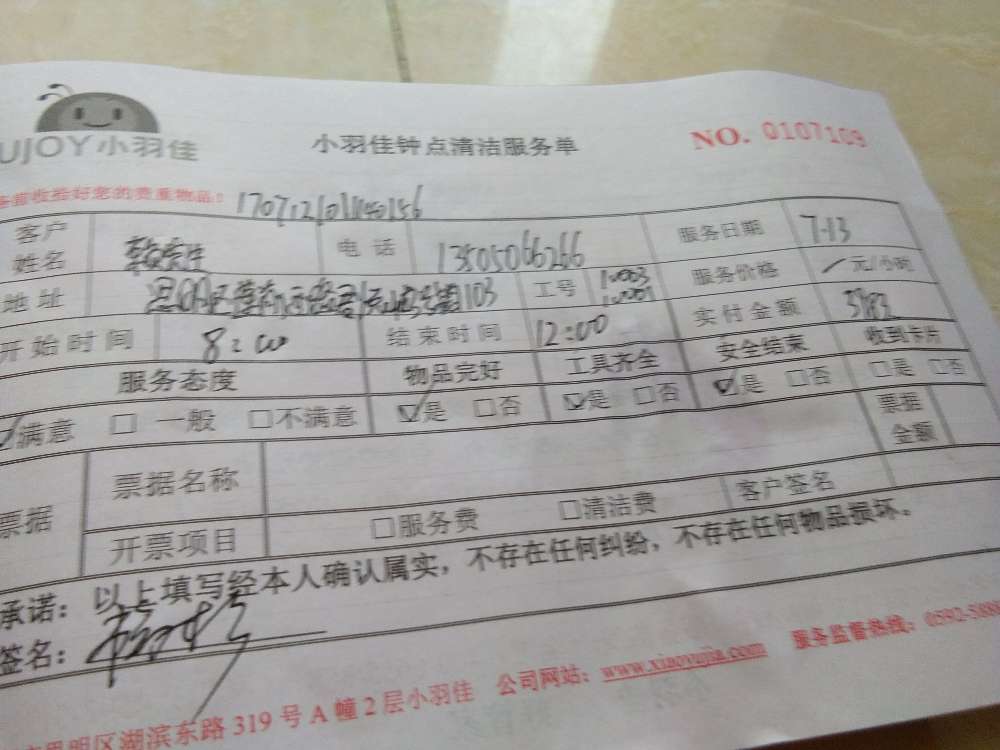 UJOY 小羽佳
小羽佳钟点清洁服务单
NO. 0107109
收拾好您的贵重物品:
客户姓名 电话 13505066266 服务日期 7-13
地址 103 工号 服务价格 元/小时
开始时间 8:00 结束时间 12:00 实付金额
服务态度 物品完好 工具齐全 安全结束 收到卡片
满意 □ 一般 □不满意 是 □否 是 □否 是 □否 □是 □否
票据 票据名称 票据金额
开票项目 □服务费 □清洁费 客户签名
承诺: 以上填写经本人确认属实,不存在任何纠纷,不存在任何物品损坏。
签名:
思明区湖滨东路319号A幢2层小羽佳 公司网站: www.xiaoyujia.com 服务监督热线: